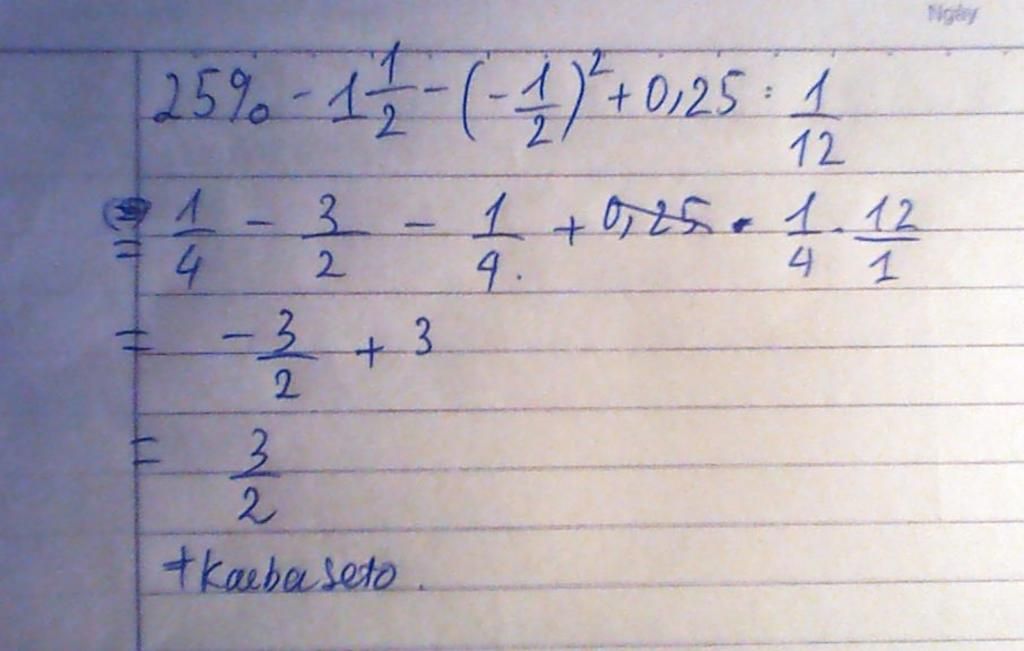 Ngày
25% - 1 1/2 - (-1/2)² + 0,25 : 1/12
= 1/4 - 3/2 - 1/4 + 0,25 . 1/4 . 12/1
= -3/2 + 3
= 3/2